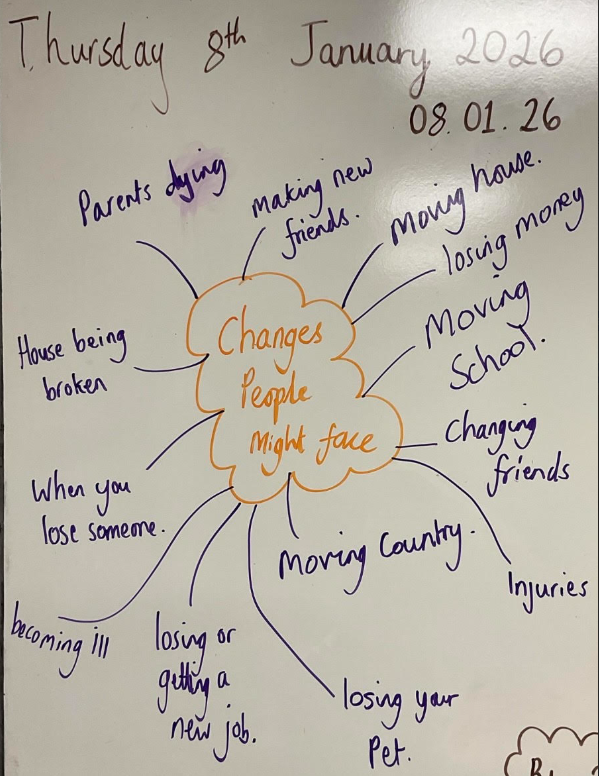 Thursday 8th January 2026
08.01.26
Parents dying
making new
friends.
Moving house.
losing money
Moving
School.
Changes
People
Might face
House being
broken
Changing
friends
When you
lose someone.
Moving Country.
Injuries
becoming ill
losing or
getting a
new job.
losing your
Pet.